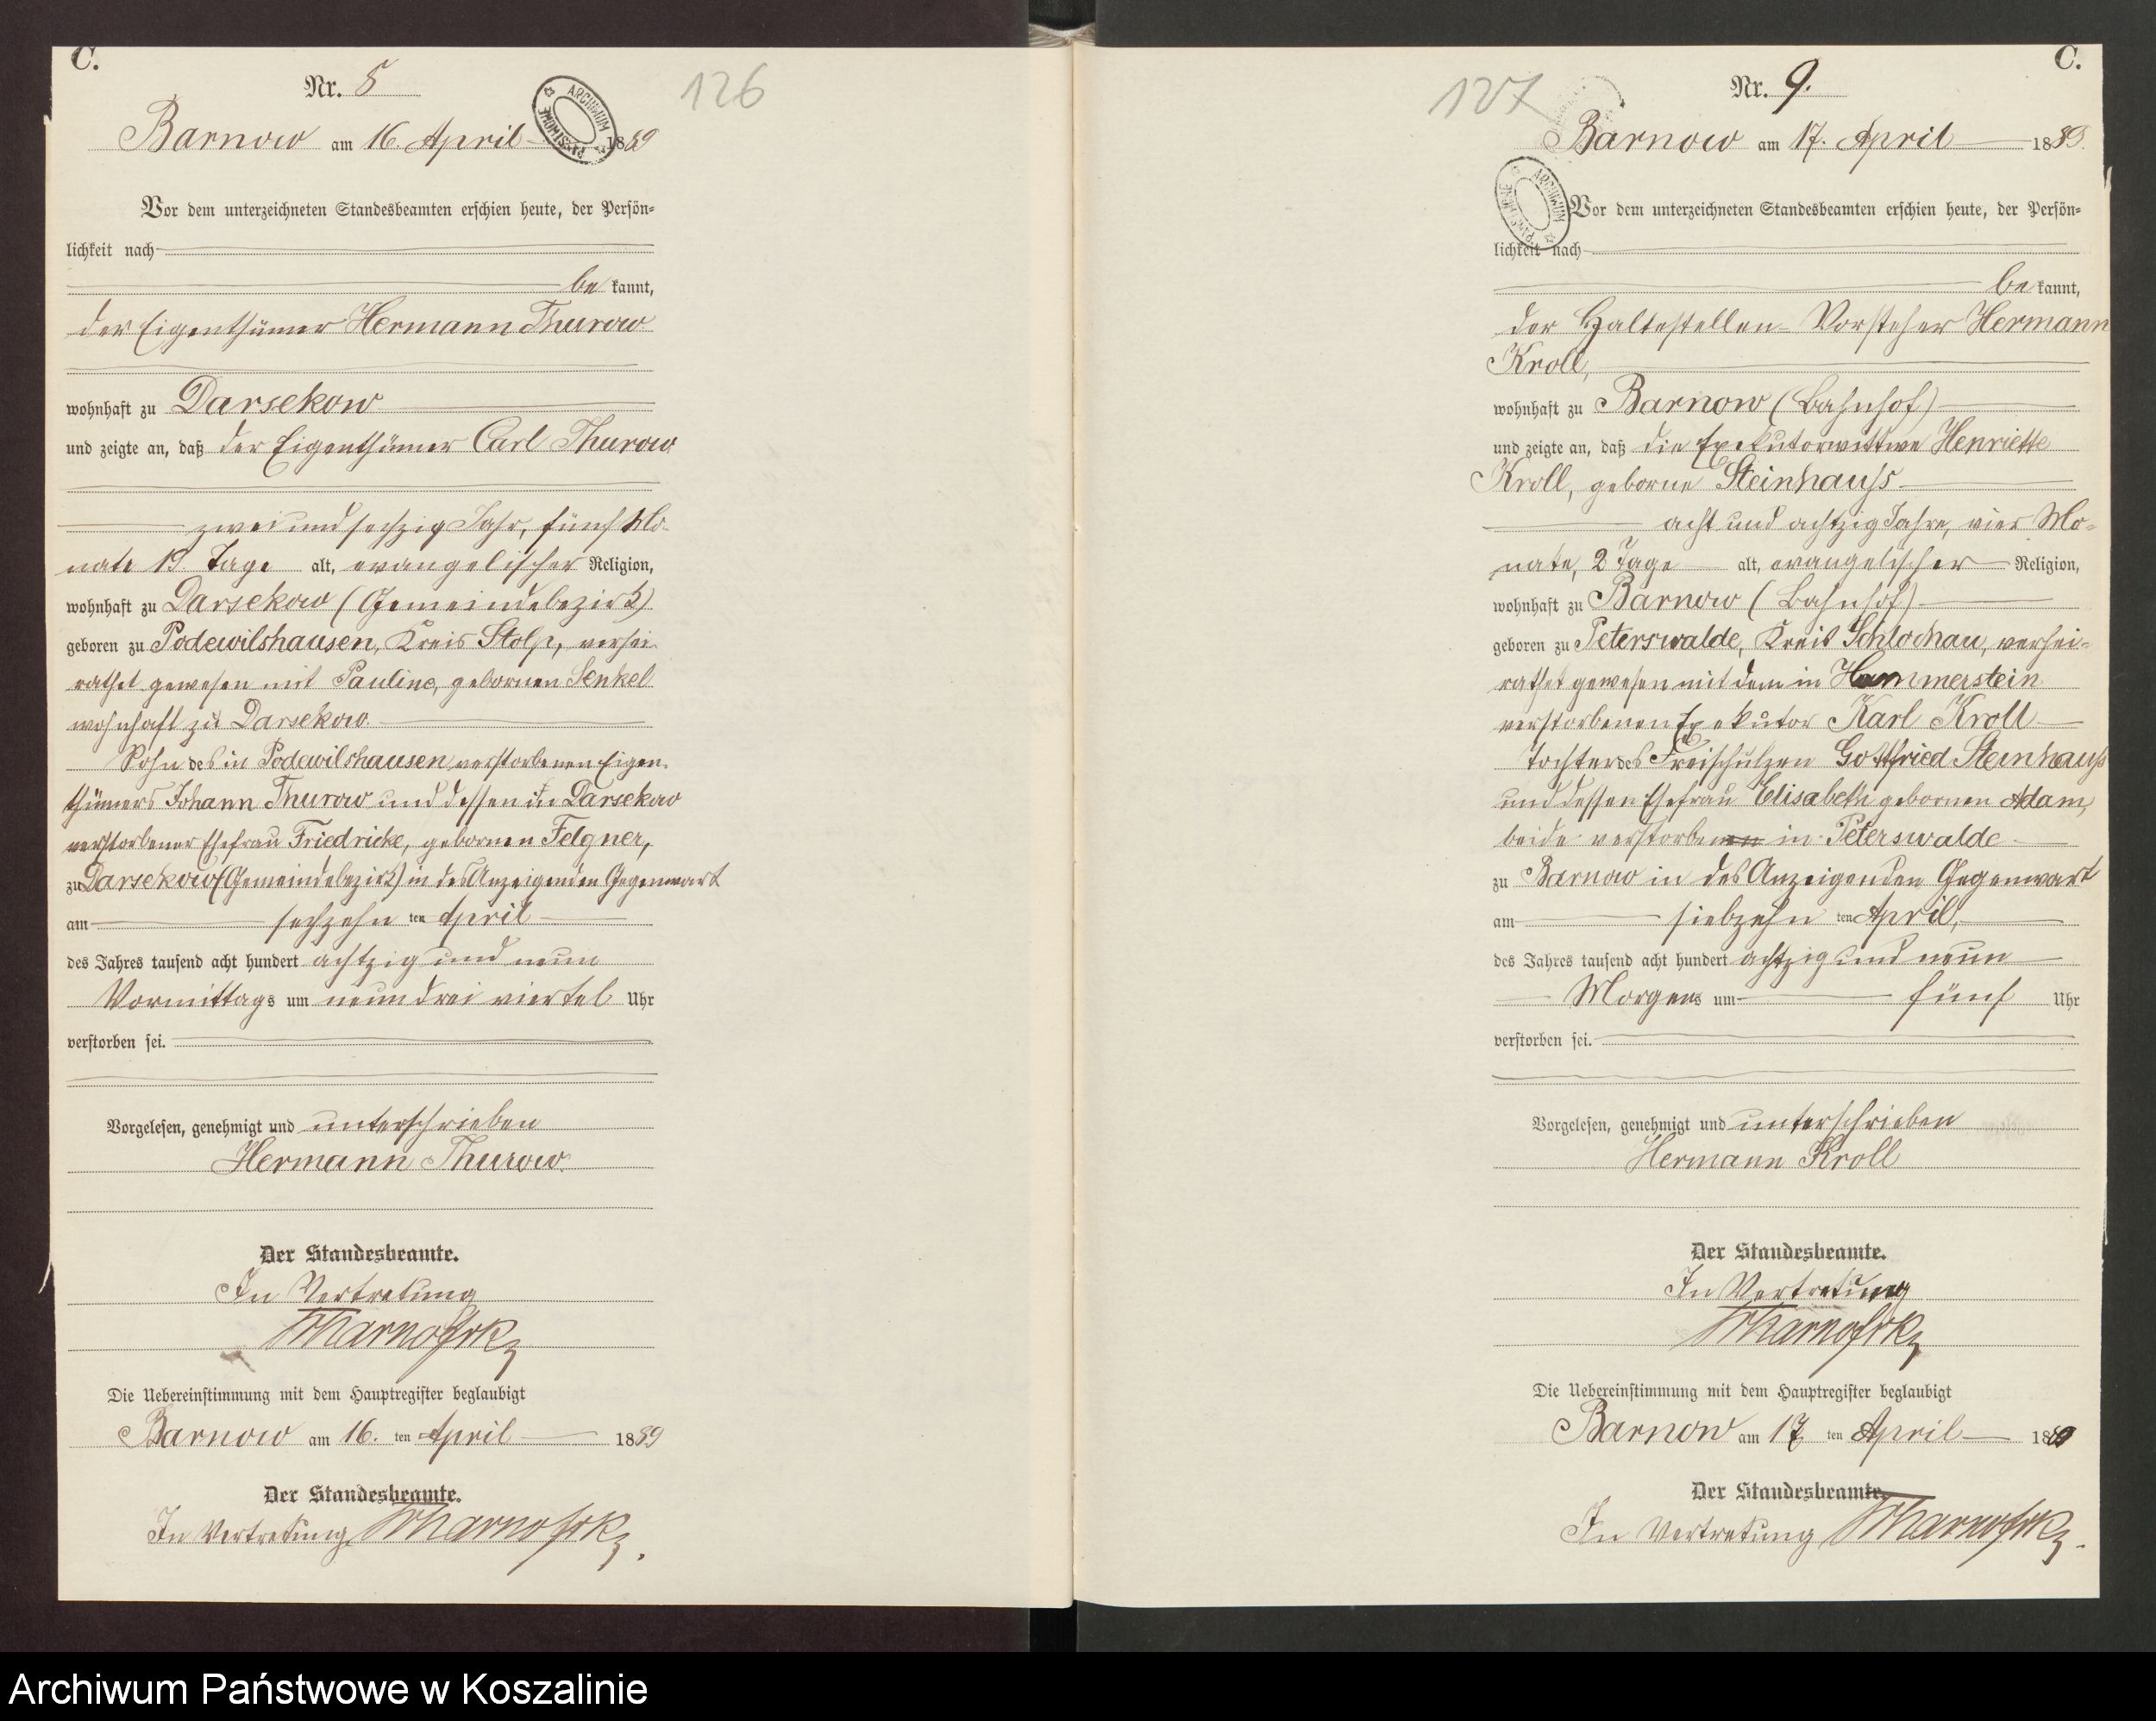 C.
Nr. 8
126
ARCHIWUM PAŃSTWOWE
Barnow am 16. April 1889
Vor dem unterzeichneten Standesbeamten erschien heute, der Persön=
lichkeit nach
be kannt,
der Eigenthümer Hermann Thurow
wohnhaft zu Darsekow
und zeigte an, daß der Eigenthümer Carl Thurow
zwei und sechzig Jahr, fünf Mo-
nate 19. Tage alt, evangelischer Religion,
wohnhaft zu Darsekow (Gemeindebezirk)
geboren zu Podewilshausen, Kreis Stolp, verhei-
rathet gewesen mit Pauline, gebornen Senkel
wohnhaft zu Darsekow.
Sohn des in Podewilshausen verstorbenen Eigen-
thümers Johann Thurow und dessen in Darsekow
verstorbener Ehefrau Friedricke, gebornen Felgner,
zu Darsekow (Gemeindebezirk) in des Anzeigenden Gegenwart
am sechzehn ten April
des Jahres tausend acht hundert achtzig und neun
Vormittags um neun drei viertel Uhr
verstorben sei.
Vorgelesen, genehmigt und unterschrieben
Hermann Thurow.
Der Standesbeamte.
In Vertretung
Die Uebereinstimmung mit dem Hauptregister beglaubigt
Barnow am 16. ten April 1889
Der Standesbeamte.
In Vertretung
C.
Nr. 9.
127
Barnow am 17. April 1889.
ARCHIWUM PAŃSTWOWE
Vor dem unterzeichneten Standesbeamten erschien heute, der Persön=
lichkeit nach
be kannt,
der Haltestellen-Vorsteher Hermann
Kroll,
wohnhaft zu Barnow (Bahnhof)
und zeigte an, daß die Exekutorwittwe Henriette
Kroll, geborne Steinhauss
acht und achtzig Jahre, vier Mo-
nate, 2 Tage alt, evangelischer Religion,
wohnhaft zu Barnow (Bahnhof)
geboren zu Peterswalde, Kreis Schlochau, verhei=
rathet gewesen mit dem in Hammerstein
verstorbenen Exekutor Karl Kroll
Tochter des Freischulzen Gottfried Steinhauss
und dessen Ehefrau Elisabeth gebornen Adam,
beide verstorbenen in Peterswalde
zu Barnow in des Anzeigenden Gegenwart
am siebzehn ten April,
des Jahres tausend acht hundert achtzig und neun
Morgens um fünf Uhr
verstorben sei.
Vorgelesen, genehmigt und unterschrieben
Hermann Kroll
Der Standesbeamte.
In Vertretung
Die Uebereinstimmung mit dem Hauptregister beglaubigt
Barnow am 17. ten April 1889
Der Standesbeamte.
In Vertretung
Archiwum Państwowe w Koszalinie